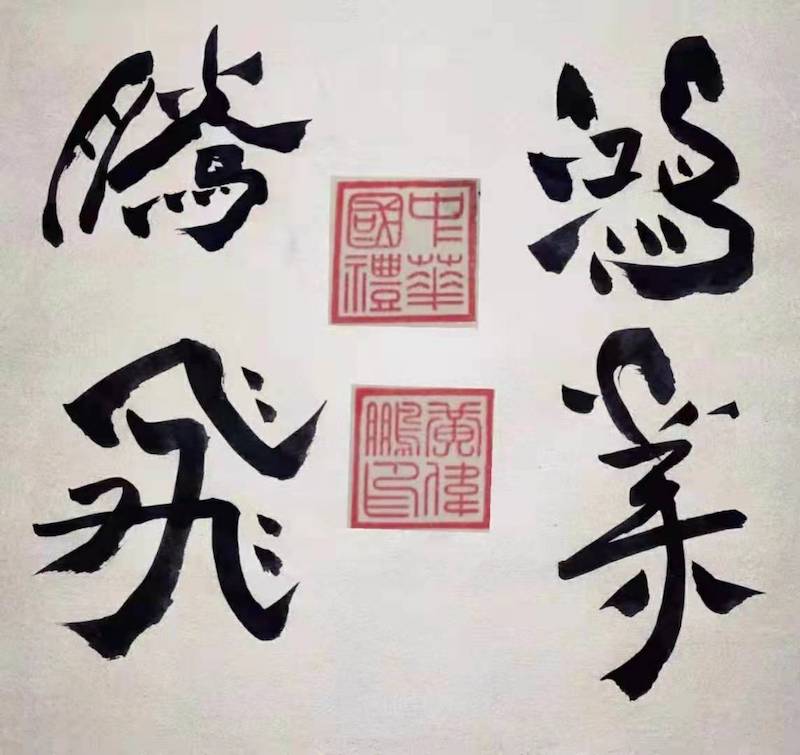 鴻業
騰飛
中華國禮
黃偉鵬印